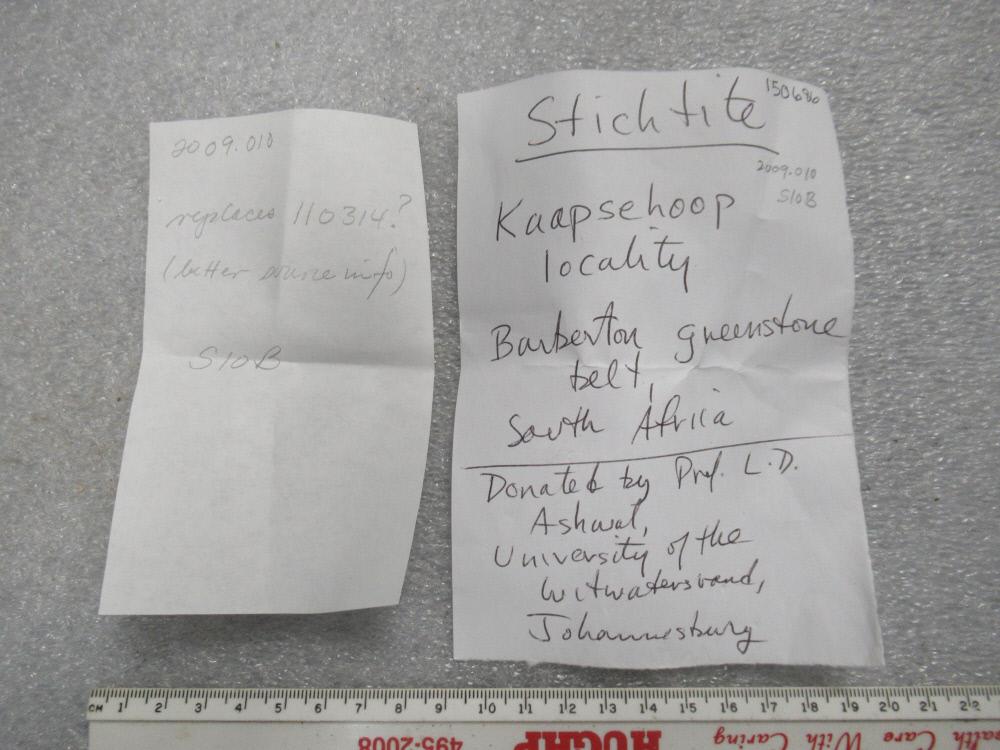 2009.010
replaces 110314?
(better source info)
S10B
150686
Stichtite
2009.010
S10B
Kaapsehoop
locality
Barberton greenstone
belt,
South Africa
Donated by Prof. L.D.
Ashwal,
University of the
Witwatersrand,
Johannesburg
CM 1 2 3 4 5 6 7 8 9 10 11 12 13 14 15 16 17 18 19 20 21 22
495-2008
ealth Care With Caring